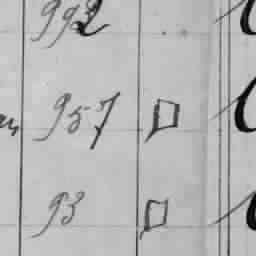 992
957 □
93 □